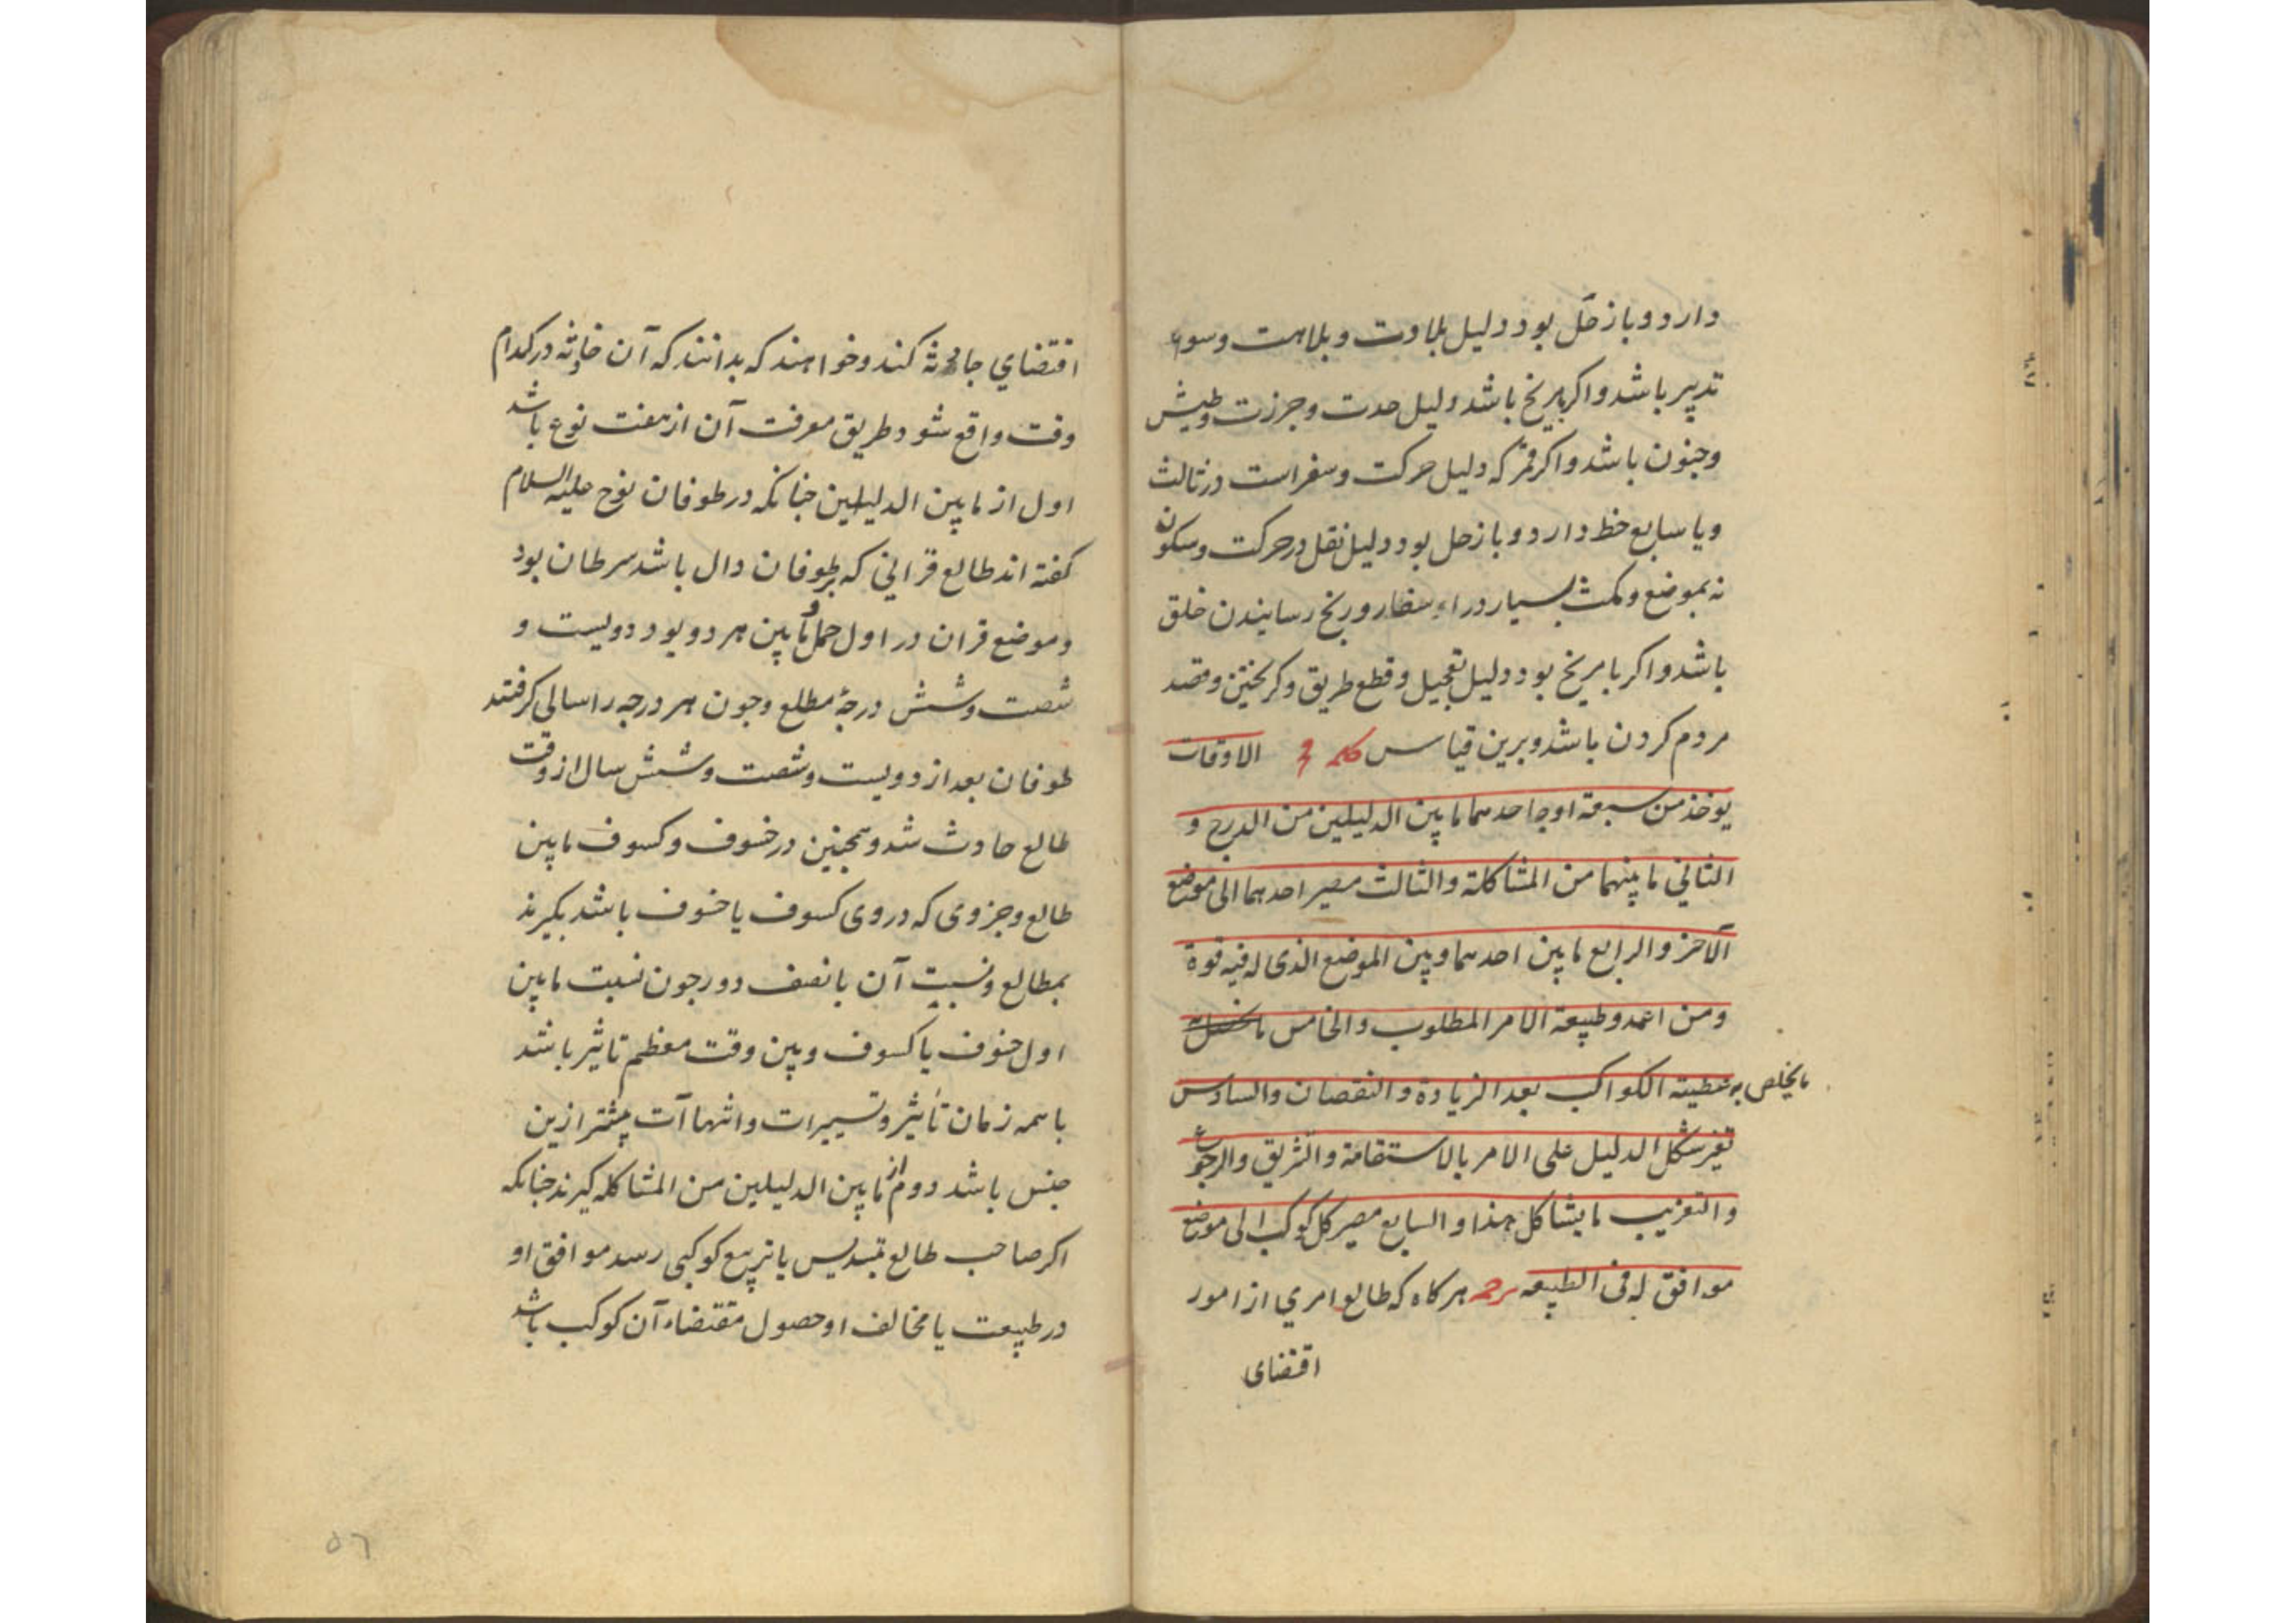 دارد و با زحل بود دلیل بلادت و بلاهت و سوء
تدبیر باشد و اکر بمریخ باشد دلیل حدت و جرزت و طیش
و جنون باشد و اکر قمر که دلیل حرکت و سفر است در ثالث
و یا سابع حظ دارد و با زحل بود دلیل نقل در حرکت و سکون
نه بموضع و مکث بسیار در اسفار و رنج رسانیدن خلق
باشد و اکر با مریخ بود دلیل تعجیل و قطع طریق و کریختن و قصد
مردم کردن باشد و برین قیاس کلمه الاوقات
یوخذ من سبعة اوجا احدهما ما بین الدلیلین من الدرج و
الثانی ما بینهما من المشاکلة و الثالث مصیر احدهما الی موضع
الآخر و الرابع ما بین احدهما و بین الموضع الذی له فیه قوة
و من اعمد و طبیعة الامر المطلوب و الخامس
ما یخلص به عطیته الکواکب بعد الزیادة و النقصان و السادس
تغیر شکل الدلیل علی الامر بالاستقامة و التشریق و الرجوع
و التغریب ما یشاکل هذا و السابع مصیر کل کوکب الی موضع
موافق له فی الطبیعه هر کاه که طالع امری از امور
اقتضای
اقتضاي حادثه کند و خواهند که بدانند که آن حادثه در کدام
وقت واقع شود طریق معرفت آن از هفت نوع باشد
اول از ما بین الدلیلین جنانکه در طوفان نوح علیه السلام
کفته اند طالع قرانی که بر طوفان دال باشد سرطان بود
و موضع قران در اول حمل و ما بین هر دو بود دویست و
شصت و شش درجۀ مطلع و جون هر درجه را سالی کرفتند
طوفان بعد از دویست و شصت و شش سال از وقت
طالع حادث شد و همجنین در خسوف و کسوف ما بین
طالع و جزوی که در وی کسوف یا خسوف باشد بکیرند
بمطالع و نسبت آن با نصف دور جون نسبت ما بین
اول خسوف یا کسوف و بین وقت معظم تاثیر باشد
با همه زمان تاثیر و تسییرات و انتهاآت بیشتر ازین
جنس باشد دوم از ما بین الدلیلین من المشاکله کیرند جنانکه
اکر صاحب طالع بتسدیس یا تربیع کوکبی رسد موافق او
در طبیعت یا مخالف او حصول مقتضاء آن کوکب باشد
٥٦